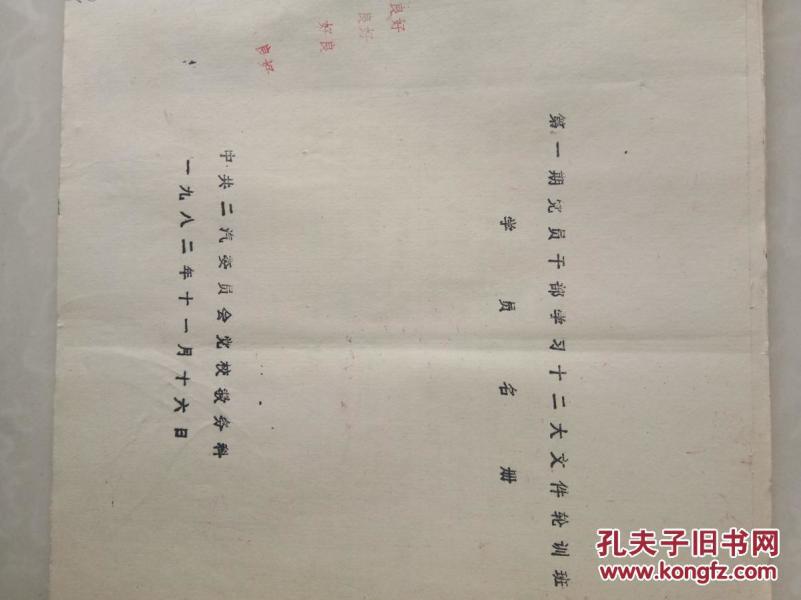 第一期党员干部学习十二大文件轮训班
学员名册
中共二汽委员会党校教务科
一九八二年十一月十六日
良好
良好
好良
良好
孔夫子旧书网
www.kongfz.com